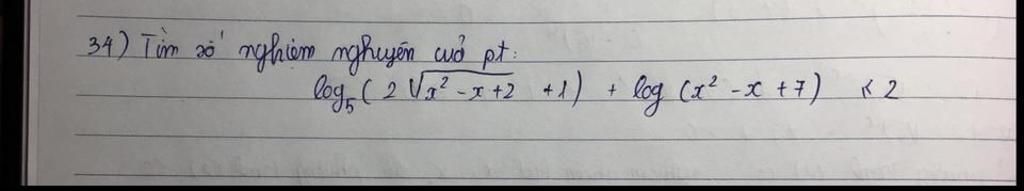 34) Tìm số nghiệm nghuyên cuả pt:
log₅(2√(x² - x + 2) + 1) + log(x² - x + 7) < 2